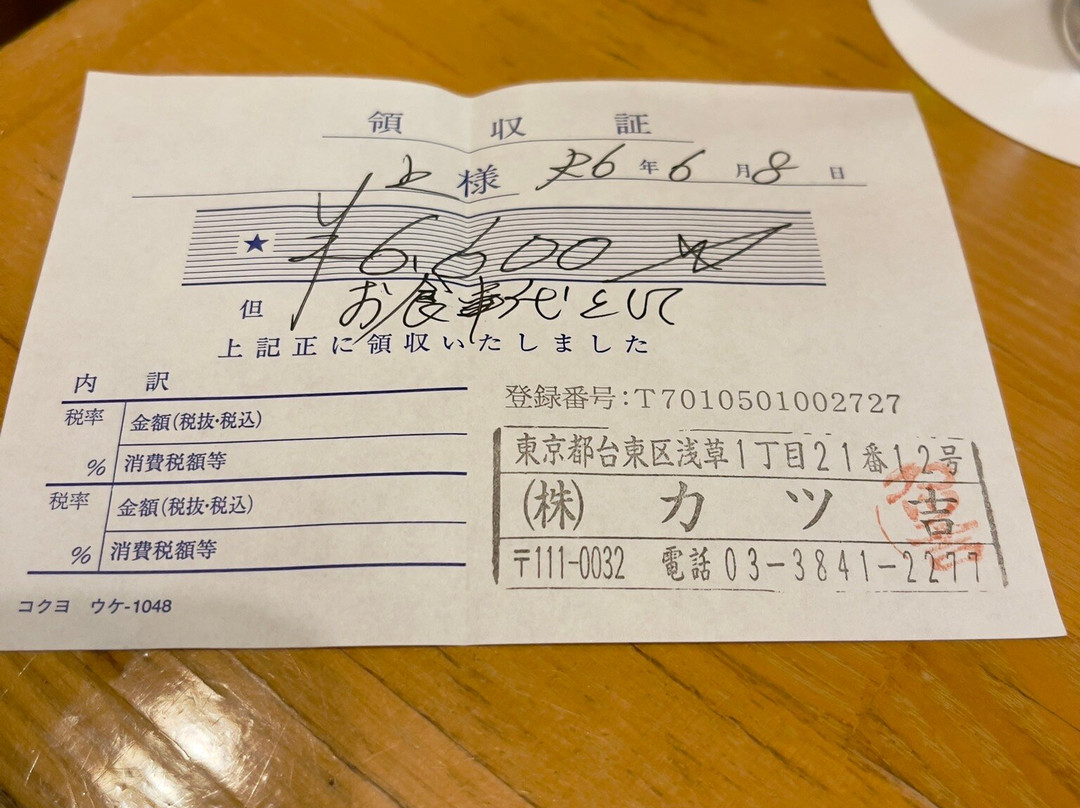 領収証
上様 26年6月8日
★ ¥6,600
但 お食事代として
上記正に領収いたしました
内訳
税率 金額(税抜・税込)
% 消費税額等
税率 金額(税抜・税込)
% 消費税額等
コクヨ ウケ-1048
登録番号:T7010501002727
東京都台東区浅草1丁目21番12号
(株)カツ吉
〒111-0032 電話03-3841-2277